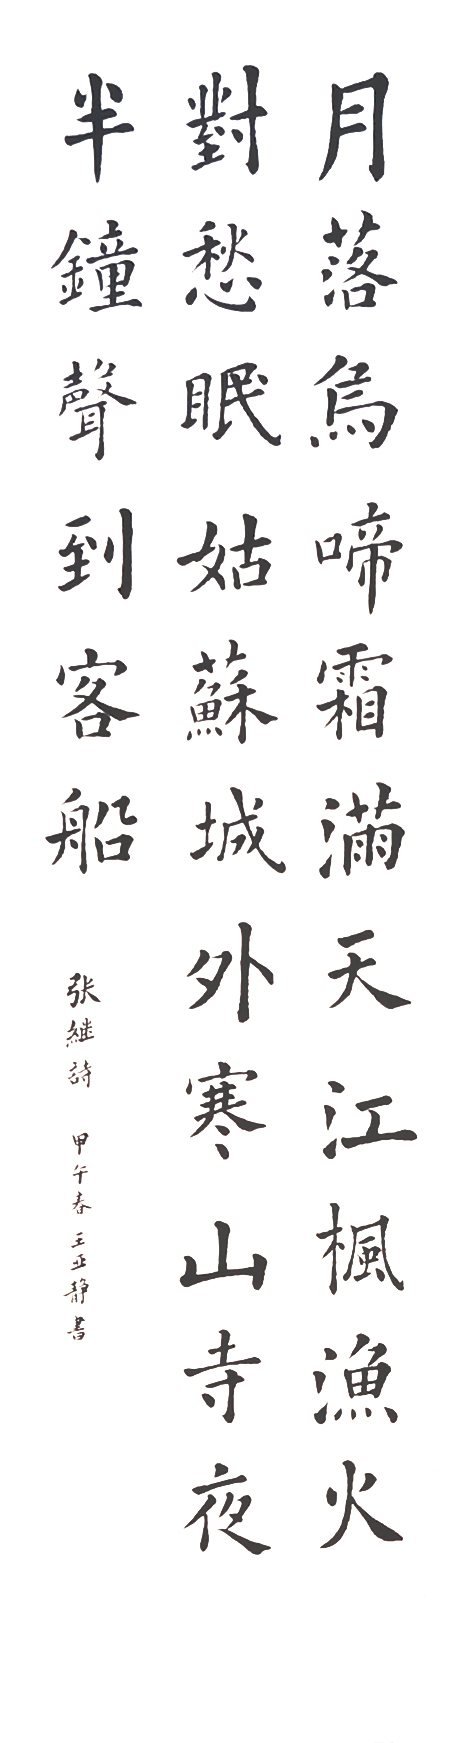 月落烏啼霜滿天江楓漁火
對愁眠姑蘇城外寒山寺夜
半鐘聲到客船
张継詩 甲午春王亚静書